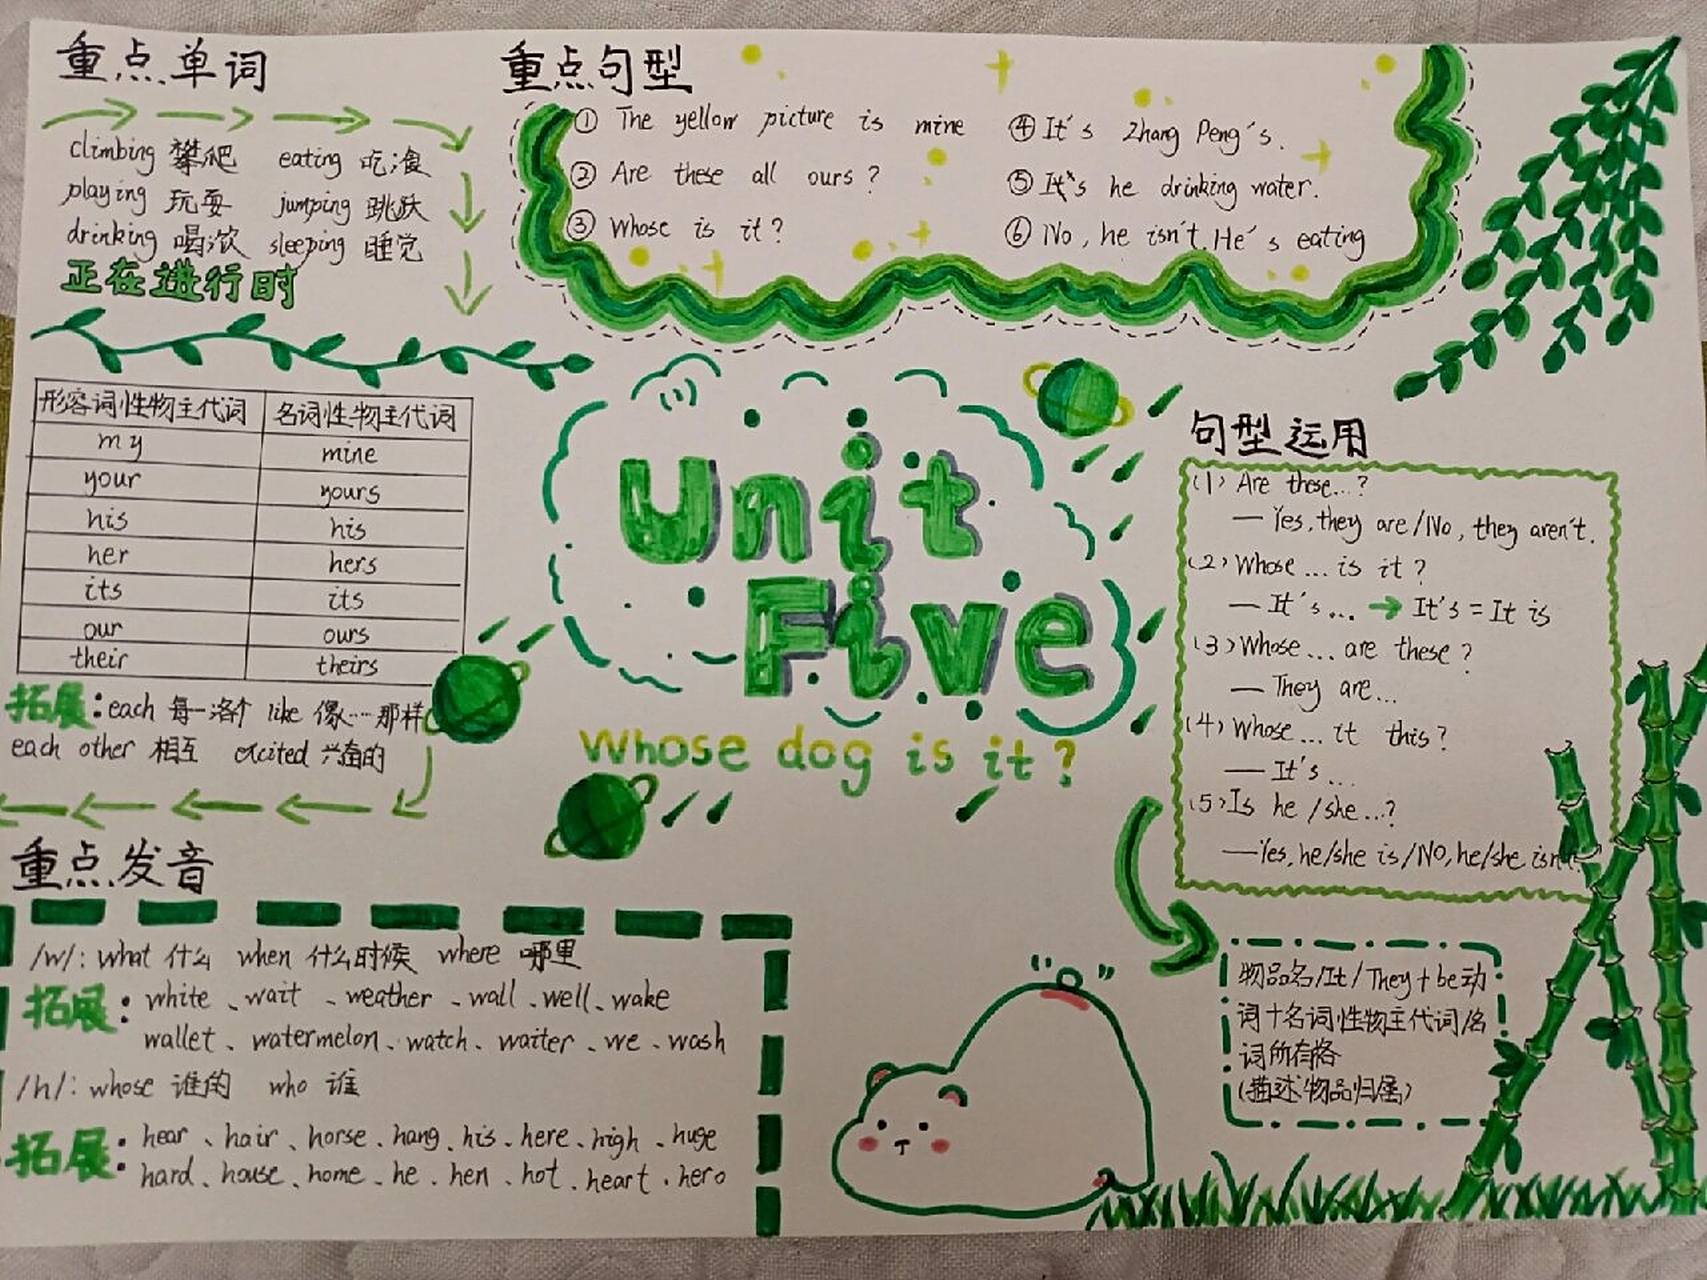 重点单词
climbing 攀爬 eating 吃食
playing 玩耍 jumping 跳跃
drinking 喝饮 sleeping 睡觉
正在进行时
重点句型
① The yellow picture is mine
② Are these all ours?
③ Whose is it?
④ It's Zhang Peng's.
⑤ It's he drinking water.
⑥ No, he isn't. He's eating
形容词性物主代词 名词性物主代词
my mine
your yours
his his
her hers
its its
our ours
their theirs
拓展: each 每一 like 像……那样
each other 相互 excited 兴奋的
Unit
Five
Whose dog is it?
句型运用
(1) Are these...?
— Yes, they are/No, they aren't.
(2) Whose ... is it?
— It's ... → It's = It is
(3) Whose ... are these?
— They are...
(4) Whose ... it this?
— It's ...
(5) Is he /she...?
— Yes, he/she is/NO, he/she isn't.
物品名/It/They+be动
词+名词性物主代词/名
词所有格
(描述物品归属)
重点发音
/w/: what 什么 when 什么时候 where 哪里
拓展: white、wait、weather、wall、well、wake
wallet、watermelon、watch、waiter、we、wash
/h/: whose 谁的 who 谁
拓展: hear、hair、horse、hang、his、here、high、huge
hard、house、home、he、hen、hot、heart、hero